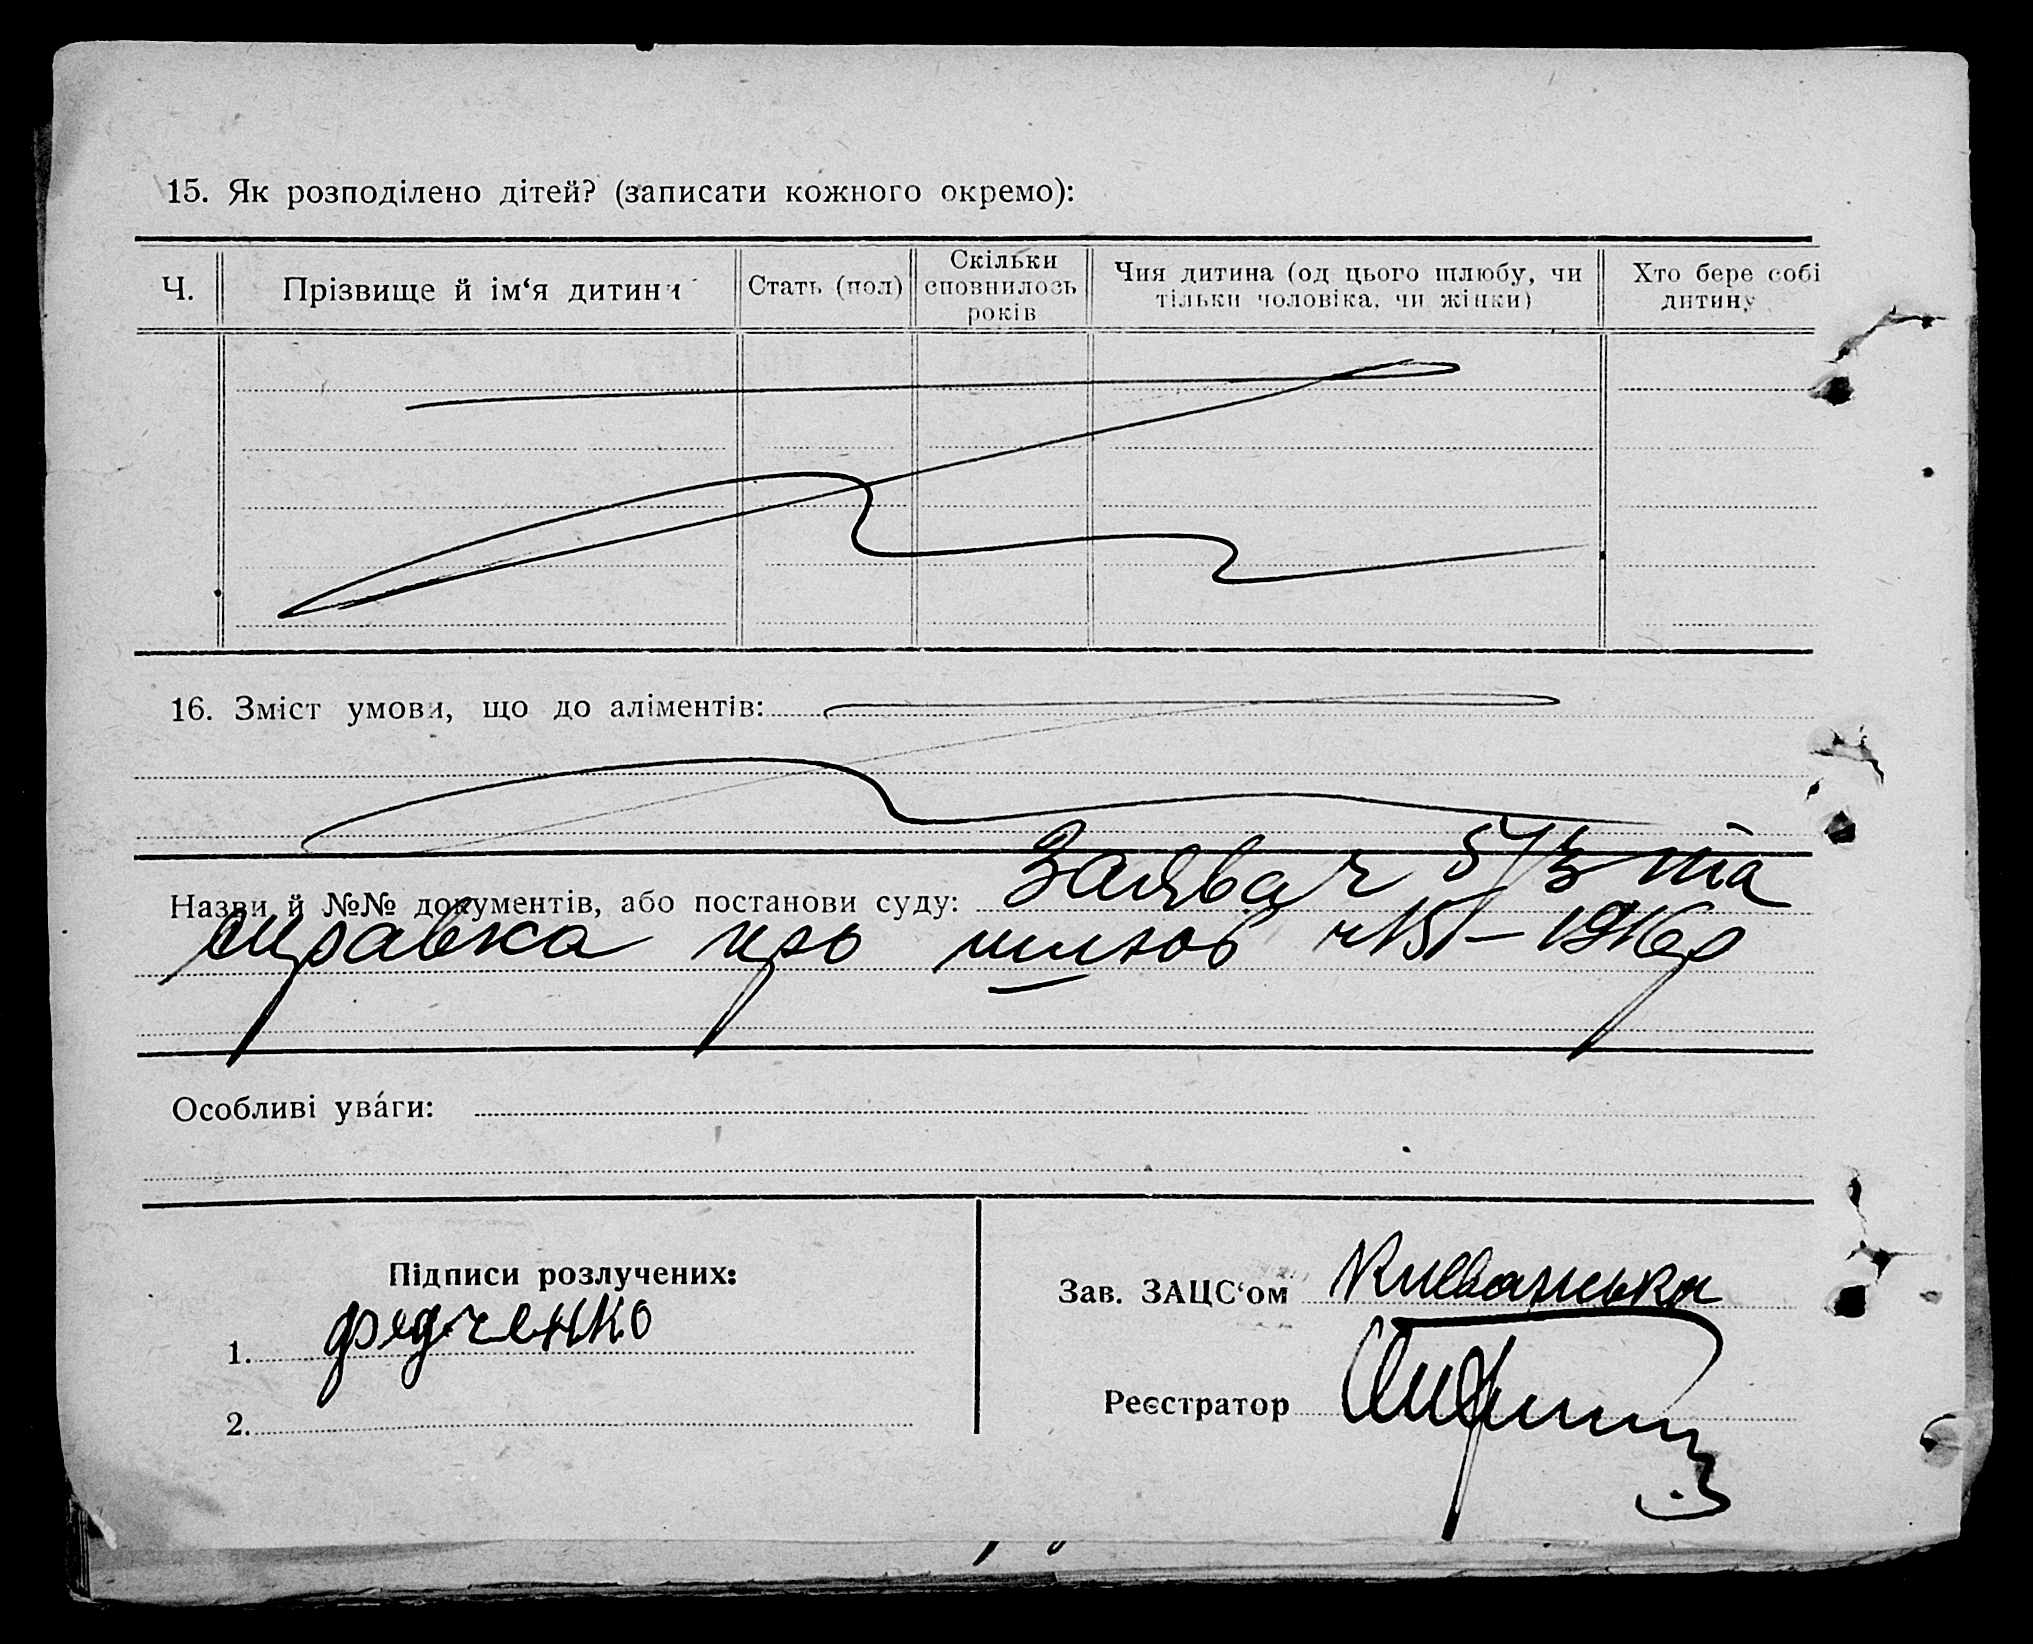 15. Як розподілено дітей? (записати кожного окремо):
Ч. Прізвище й ім‘я дитини Стать (пол) Скільки сповнилось років Чия дитина (од цього шлюбу, чи тільки чоловіка, чи жінки) Хто бере собі дитину
16. Зміст умови, що до аліментів:
Назви й №№ документів, або постанови суду: Заява ч 5/3 та
справка про шлюб ч 151 – 1916 р
Особливі ува́ги:
Підписи розлучених:
1. Федченко
2.
Зав. ЗАЦС‘ом
Реєстратор